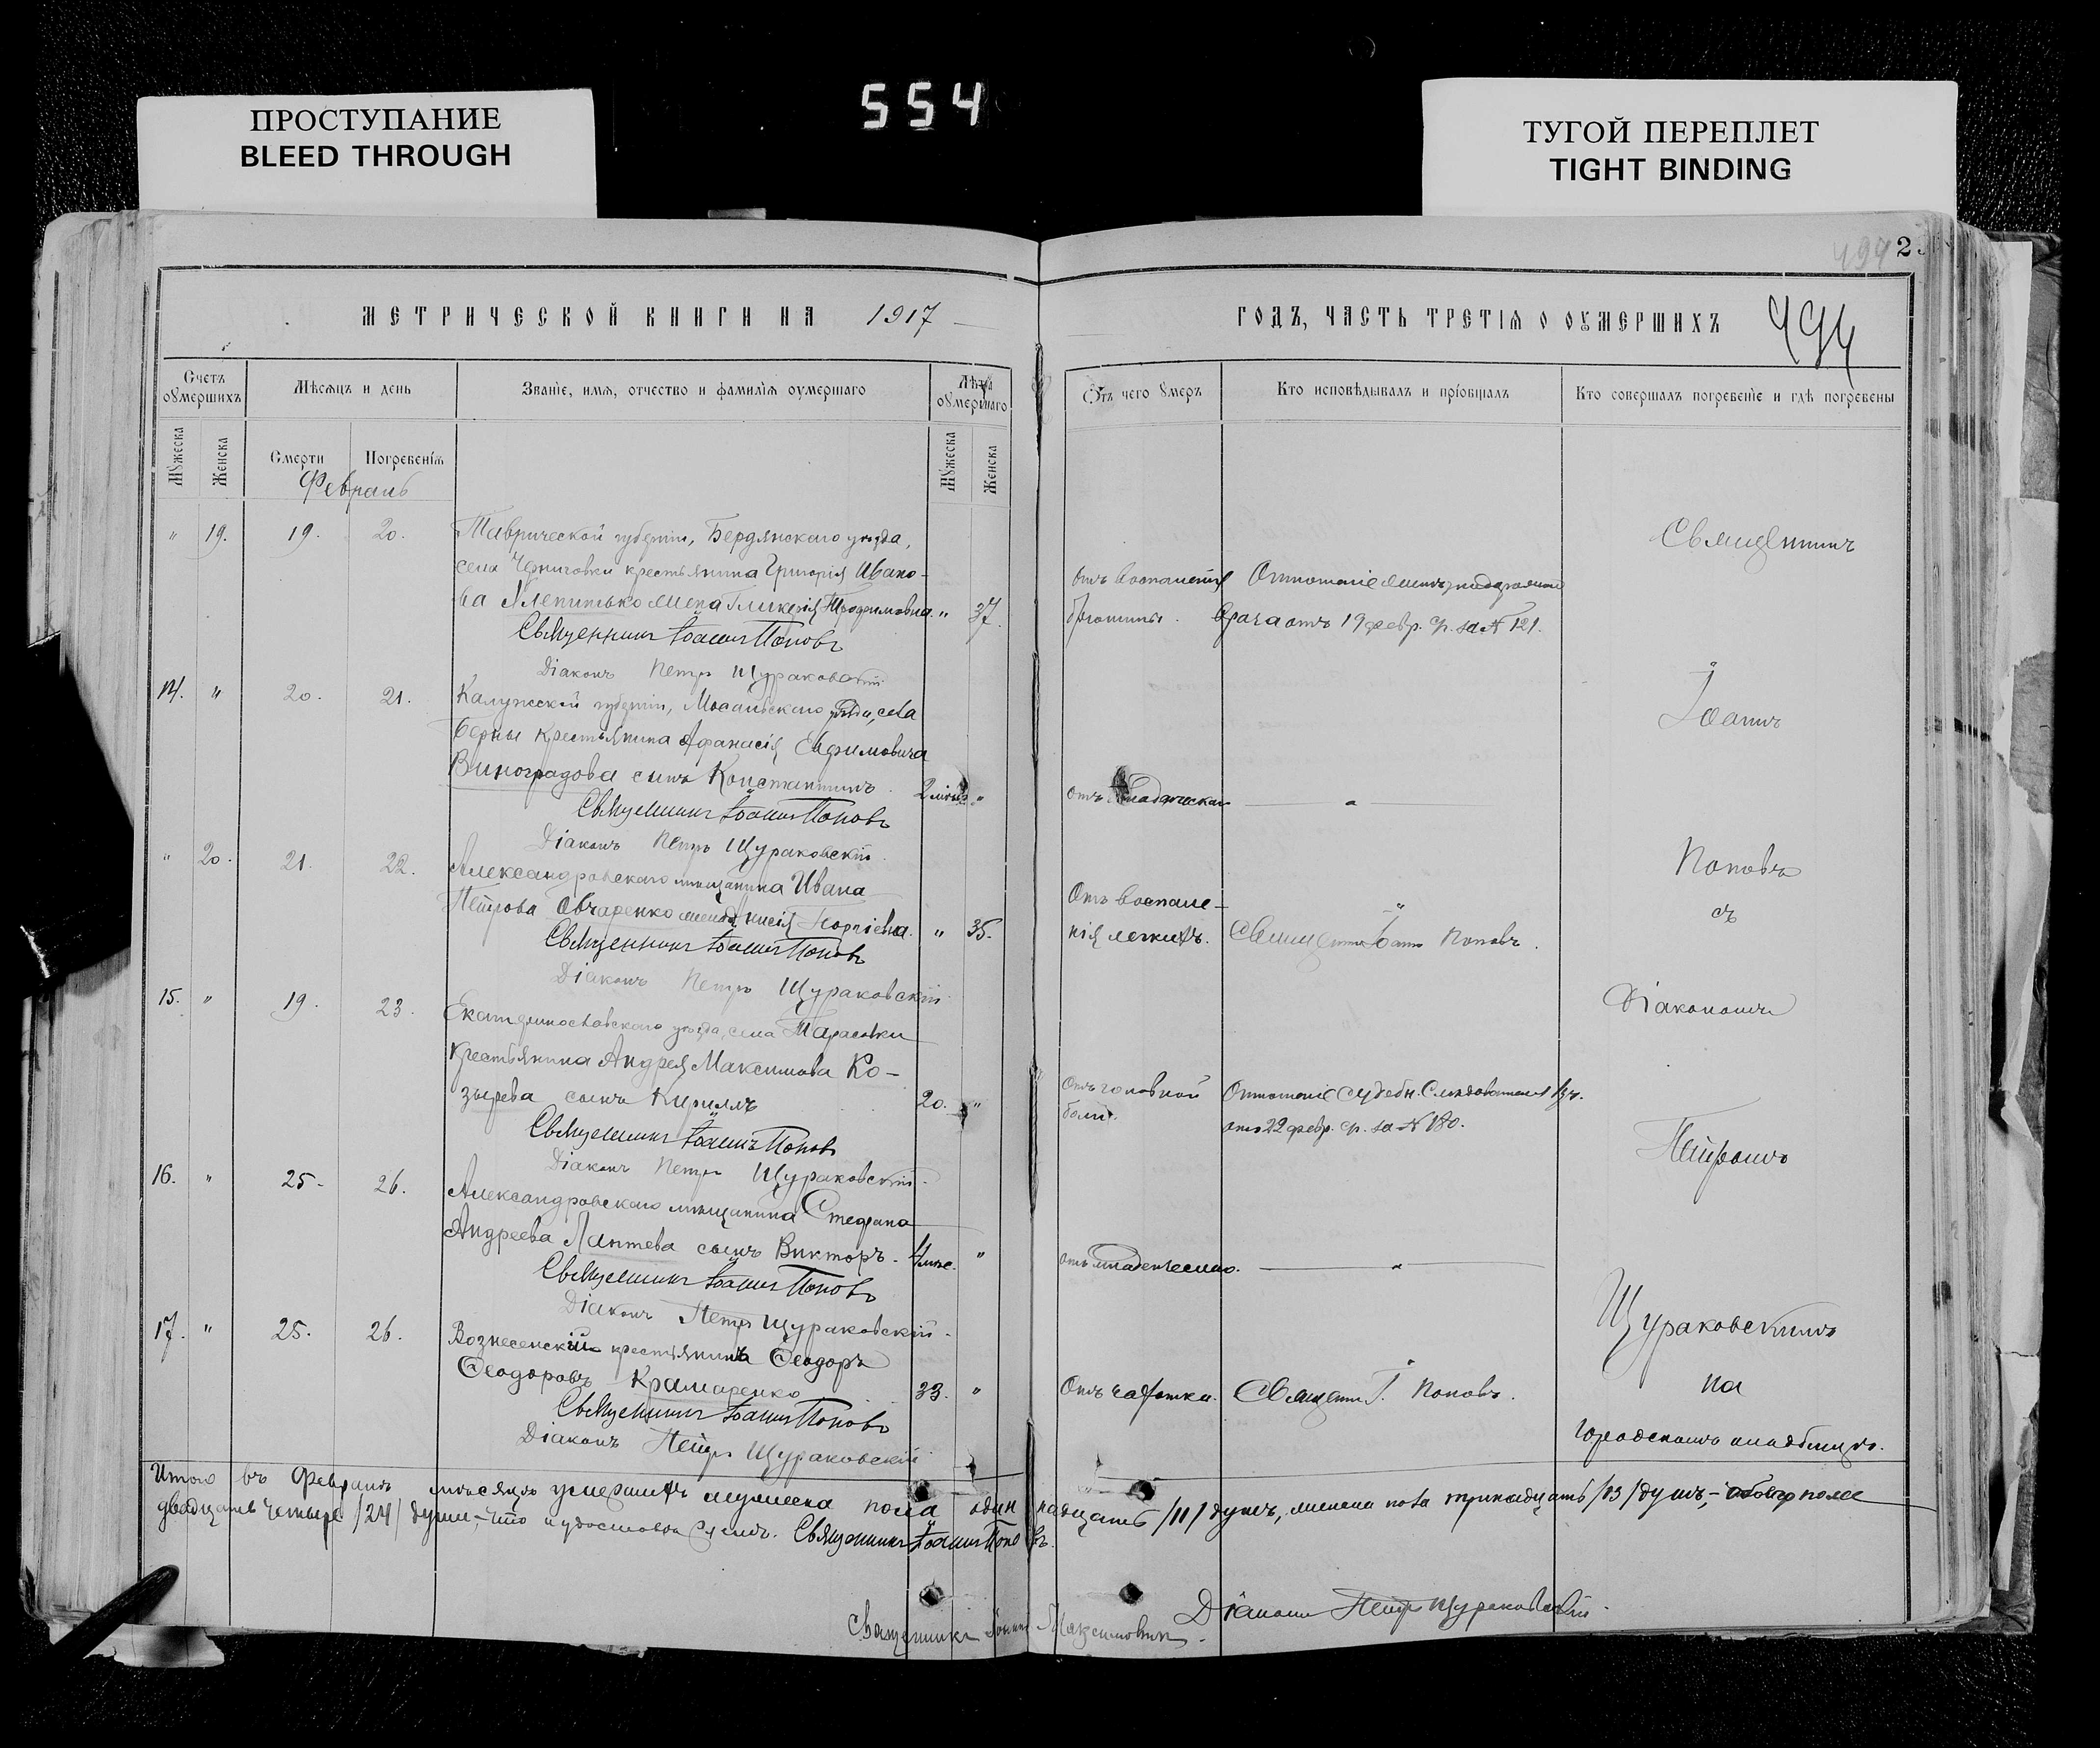 ПРОСТУПАНИЕ
BLEED THROUGH
554
ТУГОЙ ПЕРЕПЛЕТ
TIGHT BINDING
494 2
МЕТРИЧЕСКОЙ КНИГИ НА 1917
ГОДЪ, ЧАСТЬ ТРЕТІЯ О ОУМЕРШИХЪ 494
Счетъ оумершихъ
Мѣсяцъ и день
Званіе, имя, отчество и фамилія оумершаго
Лѣта оумершаго
Отъ чего умеръ
Кто исповѣдывалъ и пріобщалъ
Кто совершалъ погребеніе и гдѣ погребены
Мужеска
Женска
Смерти
Погребенія
Мужеска
Женска
Февраль
" 19. 19. 20. Таврической губерніи, Бердянскаго уѣзда,
села Черниговки крестьянина Григорія Ивано-
ва жена Гликерія Трофимовна. " 37.
отъ воспаленія
Отношеніе
врача отъ 19 февр. с/г. за № 121.
Священникъ Іоаннъ Поповъ
Діаконъ Петръ Щураковскій
14. " 20. 21. Калужской губерніи, Мосальскаго уѣзда, села
крестьянина Афанасія Евфимовича
Виноградова сынъ Константинъ. "
отъ "
Священникъ Іоаннъ Поповъ
Діаконъ Петръ Щураковскій.
" 20. 21. 22. Александровскаго мѣщанина Ивана
Петрова Овчаренко жена " 35.
Отъ воспале-
нія легкихъ. Священникъ Іоаннъ Поповъ.
Священникъ Іоаннъ Поповъ
Діаконъ Петръ Щураковскій
15. " 19. 23. Екатеринославскаго уѣзда, села Тарасовки
крестьянина Андрея Максимова Ко-
зырева сынъ Кириллъ 20. "
Отъ головной
боли.
Отношеніе Судебн. Слѣдователя
отъ 22 февр. с/г. за № 180.
Священникъ Іоаннъ Поповъ
Діаконъ Петръ Щураковскій.
16. " 25. 26. Александровскаго мѣщанина Стефана
Андреева Лаптева сынъ Викторъ. "
отъ младенческой. "
Священникъ Іоаннъ Поповъ
Діаконъ Петръ Щураковскій.
17. " 25. 26. Вознесенскій крестьянинъ Ѳеодоръ
Ѳеодоровъ Крамаренко 33. "
Отъ чахотки. Священ. І. Поповъ.
Священникъ Іоаннъ Поповъ
Діаконъ Петръ Щураковскій
Священникъ
Іоаннъ
Поповъ
съ
Діакономъ
Петромъ
Щураковскимъ
на
городскомъ кладбищѣ.
Итого въ Февралѣ мѣсяцѣ умершихъ мужеска пола одиннадцать /11/ душъ, женска пола тринадцать /13/ душъ, – обоего пола
двадцать четыре /24/ души, – что и удостовѣряемъ. Священникъ Іоаннъ Поповъ.
Діаконъ Петръ Щураковскій.
Священникъ Іоаннъ Максимовичъ.